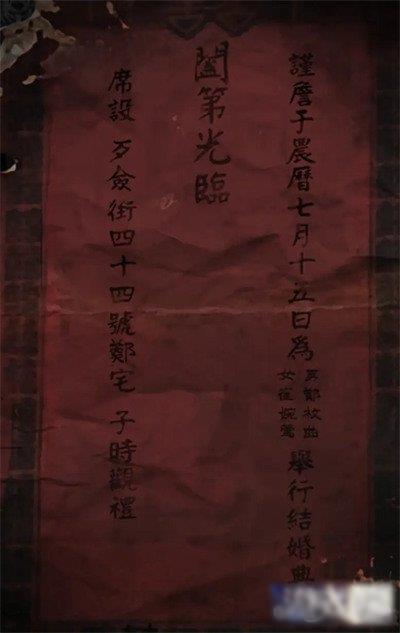 謹詹于農曆七月十五日為
男鄭枚
女崔婉鶯
舉行結婚典
闔第光臨
席設 歹僉街四十四號鄭宅 子時觀禮